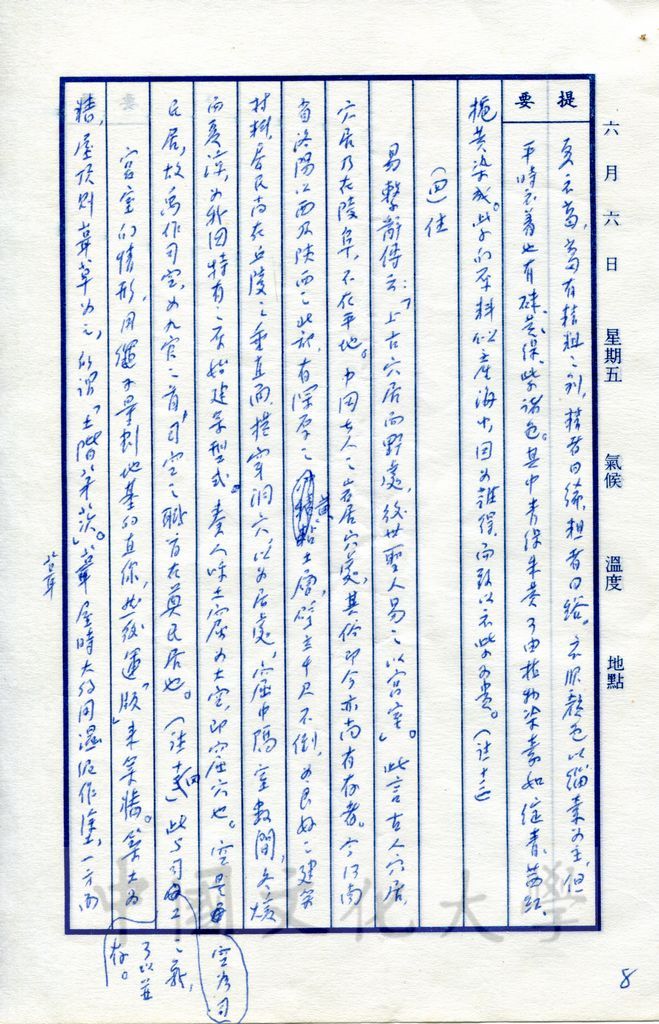 六月六日 星期五 氣候 溫度 地點
提要
夏衣葛，葛有精粗之別，精者曰絺，粗者曰綌。衣服顏色以緇素為主，但
平時衣着也有硃、黃、綠、紫諸色。其中青綠朱黃可由植物染素如靛青、茜紅、
梔黃染成。紫的原料似產海中，因為難得，而致以衣紫為貴。（註十三）
（四）住
易繫辭傳云：「上古穴居而野處，後世聖人易之以宮室」。此言古人穴居，
穴居乃在陵阜，不在平地。中國古人之岩居穴處，其俗即今亦尚有存者。今河南
省洛陽以西及陝西之北部，有深厚之黃土層，壁立千尺不倒，為良好之建築
材料，居民尚在丘陵之垂直面，挖穿洞穴以為居處，窟中隔室數間，冬燠
而夏涼，為我國特有之原始建築型式。秦人呼土窟為土空，即窟穴也。空是
空為司
民居，故禹作司空，為九官之首，司空之職首在奠民居也。（註十四）此與司工之說，
可以並存。
宮室的情形，用繩子量劃地基的直線，然後運「版」來築牆。築土為
牆，屋頂則葺草為之，所謂「土階茅茨」。葺屋時大約用濕泥作塗，一方面
葺
8
中國文化大學